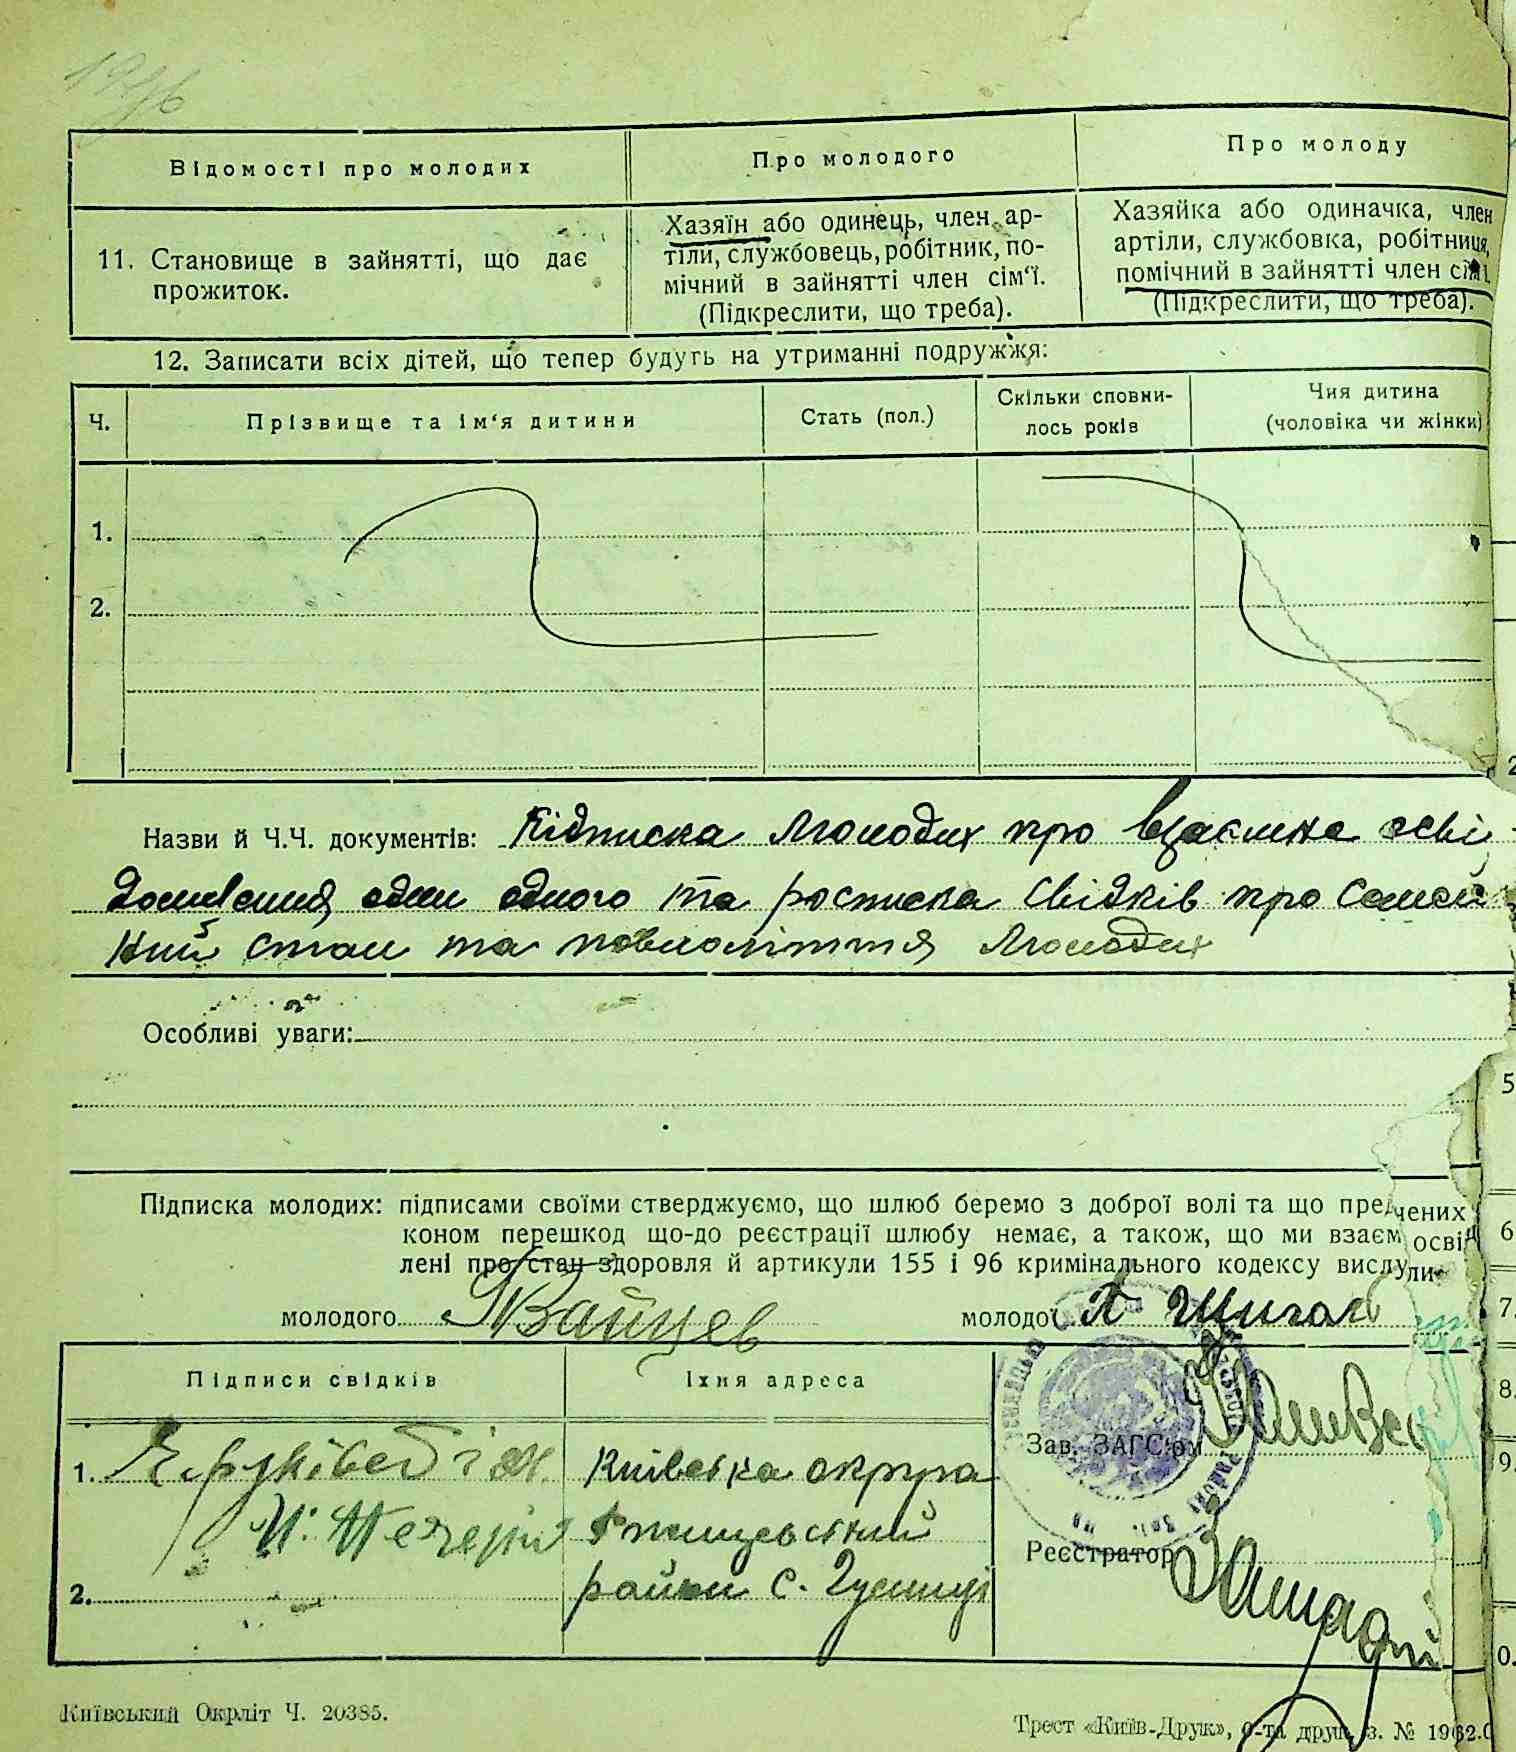 Відомості про молодих
Про молодого
Про молоду
11. Становище в зайнятті, що дає
прожиток.
Хазяїн або одинець, член ар-
тіли, службовець, робітник, по-
мічний в зайнятті член сім'ї.
(Підкреслити, що треба).
Хазяйка або одиначка, член
артіли, службовка, робітниця,
помічний в зайнятті член сім'ї.
(Підкреслити, що треба).
12. Записати всіх дітей, що тепер будуть на утриманні подружжя:
Ч.
Прізвище та ім'я дитини
Стать (пол.)
Скільки сповни-
лось років
Чия дитина
(чоловіка чи жінки)
1.
2.
Назви й Ч.Ч. документів: Підписка молодих про взаємне осві-
домлення один одного та росписка свідків про семей
ний стан та повноліття молодих
Особливі уваги:
Підписка молодих: підписами своїми стверджуємо, що шлюб беремо з доброї волі та що пред чених
коном перешкод що-до реєстрації шлюбу немає, а також, що ми взаєм осві
лені про стан здоров'я й артикули 155 і 96 кримінального кодексу вислу
молодого
молодої
Підписи свідків
Їхня адреса
1.
Київська округа
район с.
2.
Зав. ЗАГС'ом
Реєстратор
Київський Окрліт Ч. 20385.
Трест «Київ-Друк», 6-та друк. з. № 1962.